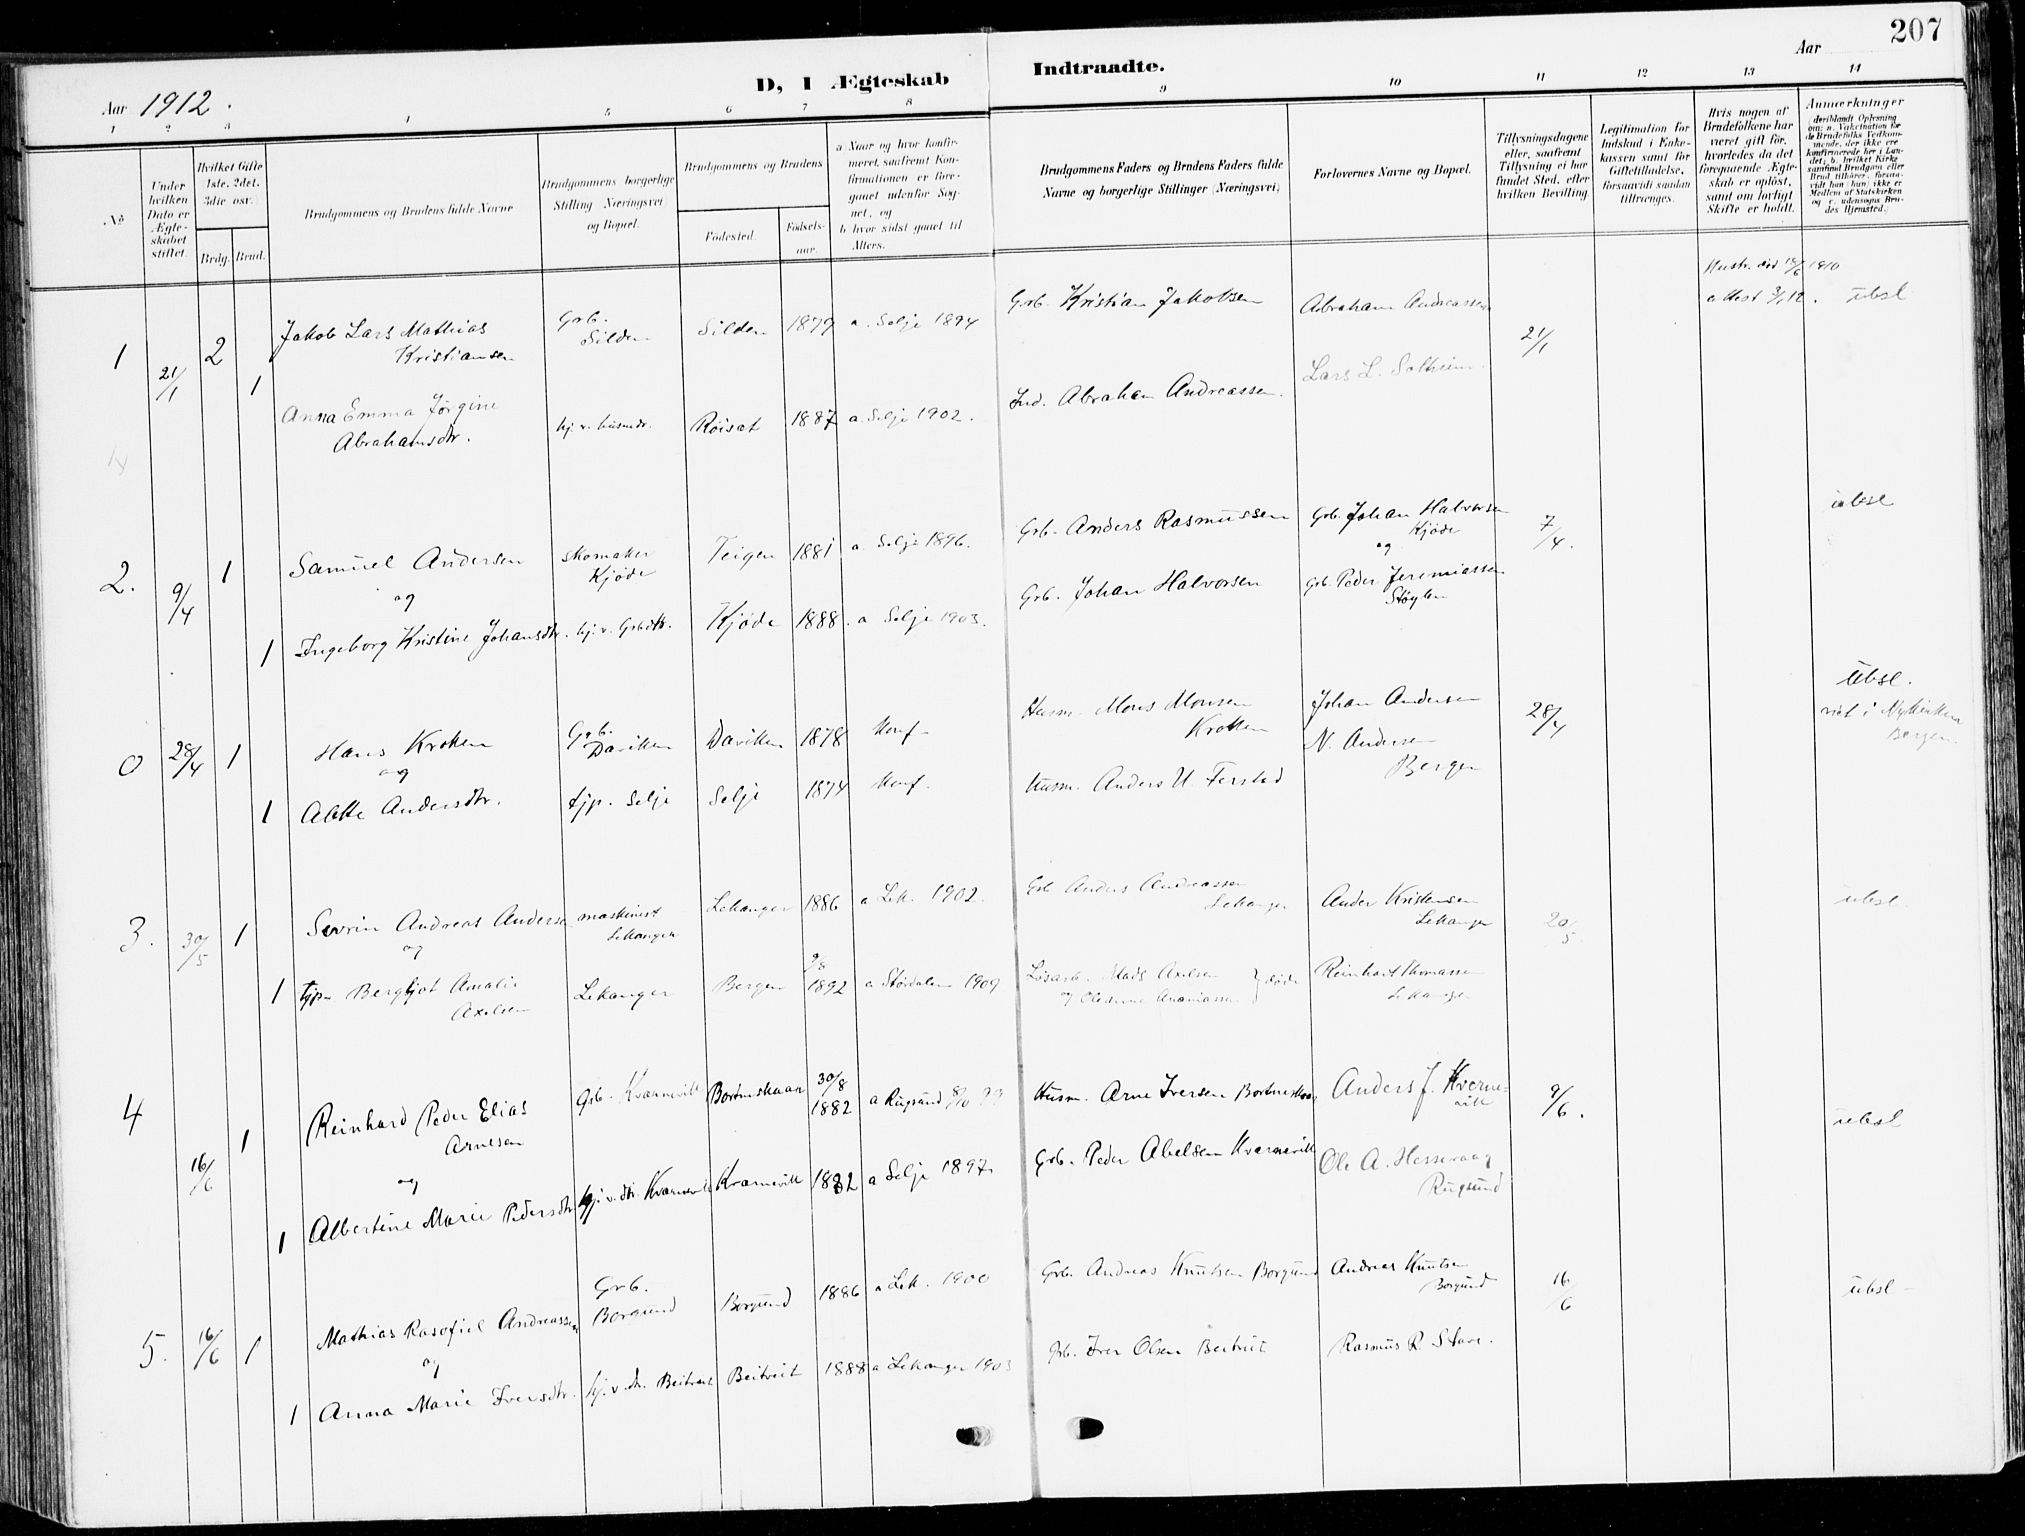 207
Aar 1912.
D, I Ægteskab
Indtraadte.
Aar
1 2 3 4 5 6 7 8 9 10 11 12 13 14
No
Under hvilken Dato er Ægteskabet stiftet.
Hvilket Gifte 1ste, 2det, 3die osv.
Brdg. Brud.
Brudgommens og Brudens fulde Navne
Brudgommens borgerlige Stilling Næringsvei og Bopæl.
Brudgommens og Brudens
Fødested.
Fødselsaar.
a Naar og hvor konfirmeret, saafremt Konfirmationen er foregaaet udenfor Sognet, og
b hvor sidst gaaet til Alters.
Brudgommens Faders og Brudens Faders fulde Navne og borgerlige Stillinger (Næringsvei)
Forlovernes Navne og Bopæl.
Tillysningsdagene eller, saafremt Tillysning ei har fundet Sted, efter hvilken Bevilling.
Legitimation for Indskud i Enkekassen samt for Giftetilladelse, forsaavidt saadan tiltrænges.
Hvis nogen af Brudefolkene har været gift før, hvorledes da det foregaaende Ægteskab er opløst, samt om lovligt Skifte er holdt.
Anmerkninger
1 21/1 2 Jakob Lars Mathias Kristiansen Grb. Silden Silden 1879 a. Selje 1894 Grb. Kristian Jakobsen Abraham Andreassen 21/1 ubsl
1 Anna Emma Jørgine Abrahamsdtr. hj. v. husmdr. Røiset 1887 a. Selje 1902. Ind. Abraham Andreassen. Lars L. Solheim.
2. 9/4 1 Samuel Andersen skomaker Kjøde Teigen 1881 a. Selje 1896. Grb. Anders Rasmussen Grb. Johan Halvorsen Kjøde 7/4. ubsl
og og
1 Ingeborg Kristine Johansdtr. hj. v. Grbdtr. Kjøde 1888. a Selje 1903. Grb. Johan Halvorsen Grb. Peder Jeremiassen Støylen
0 28/4 1 Hans Kroken Grb. Daviken Daviken 1878 Konf. Husm. Mons Monsen Krokken Johan Andersen 28/4 Ubsl.
viet i Nykirken Bergen.
og N. Andersen Bergen
1 Andersdtr. tjp. Selje Selje 1874 Konf. Husm. Anders
3. 30/5 1 Sevrin Andreas Andersen maskinist Lekanger Lekanger 1886 a Lek. 1902. Grb Anders Andreassen Lekanger Ander Kristensen Lekanger 20/5 ubsl.
og
1 tjp. Bergljot Amalie Axelsen Lekanger Bergen 1892 a Stordalen 1909 Løsarb. Mads Axelsen døde Reinhart Thomassen Lekanger
4 16/6 1 Reinhard Peder Elias Arnesen Grb. Kvarnevik Bortneskaar 30/8 1882 a Rugsund Husm. Arne Iversen Anders J. Kvernevik 9/6. ubsl
og
1 Albertine Marie Pedersdtr. hj. v. dtr. Kvarnevik Kvarnevik 1882 a Selje 1897. Grb. Peder Abelsen Kvarnevik Ole A. Hessevaag Rugsund
5. 16/6 1 Mathias Rasofiel Andreassen Grb. Borgund Borgund 1886 a Lek. 1900 Grb. Andreas Knutsen Borgund Andreas Knutsen Borgund 16/6 ubsl
og
1 Anna Marie Iversdtr. hj. v. dr. Beitveit Beitveit 1888 a Lekanger 1903 Grb. Iver Olsen Beitveit Rasmus R. Stave.